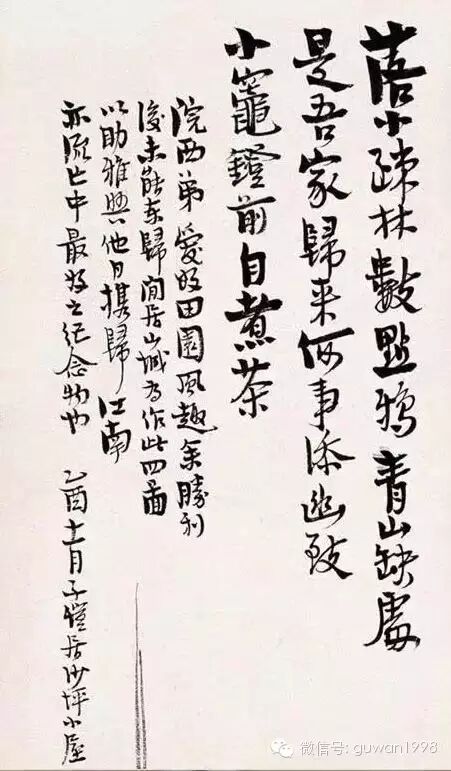 落日踈林數點鴉青山缺處
是吾家歸来何事添幽致
小竈鐙前自煮茶
院西弟愛好田園風趣余勝利
後未能東歸閒居山城為作此四圖
以助雅興他日携歸江南
亦流亡中最好之紀念物也 乙酉十一月子愷居沙坪小屋
微信号: guwan1998